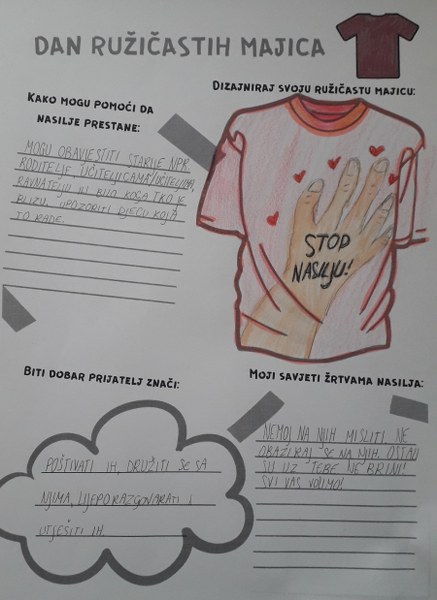 DAN RUŽIČASTIH MAJICA
KAKO MOGU POMOĆI DA
NASILJE PRESTANE:
MOGU OBAVIJESTITI STARIJE NPR.
RODITELJE UČITELJICAMA/UČITELJIMA,
RAVNATELJU ILI BILO KOGA TKO JE
BLIZU. UPOZORITI DJECU KOJA
TO RADE.
DIZAJNIRAJ SVOJU RUŽIČASTU MAJICU:
STOP
NASILJU!
BITI DOBAR PRIJATELJ ZNAČI:
POŠTIVATI IH, DRUŽITI SE SA
NJIMA, LIJEPO RAZGOVARATI I
UTJEŠITI IH.
MOJI SAVJETI ŽRTVAMA NASILJA:
NEMOJ NA NJIH MISLITI. NE
OBAZIRAJ SE NA NJIH. OSTALI
SU UZ TEBE NE BRINI!
SVI VAS VOLIMO!